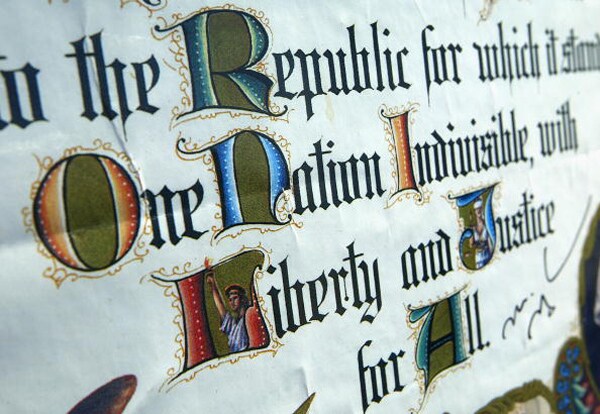 to the Republic for which it stand
One Nation Indivisible, with
Liberty and Justice
for All.